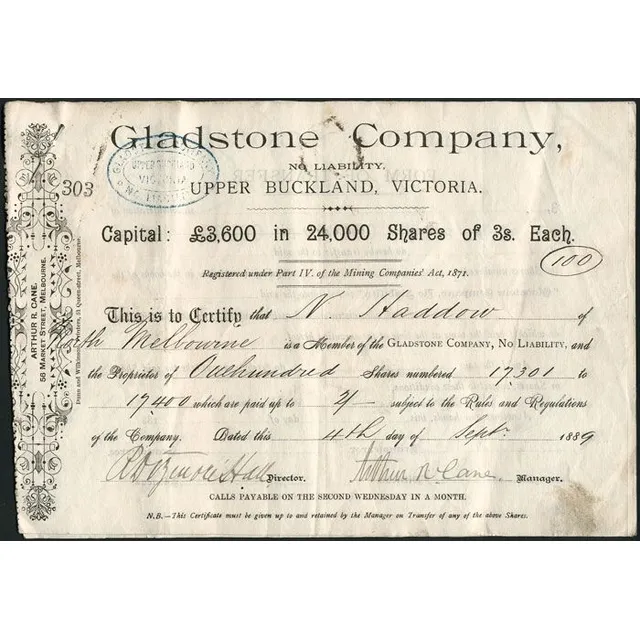 Gladstone Company,
NO LIABILITY,
UPPER BUCKLAND, VICTORIA.
UPPER BUCKLAND
VICTORIA
303
Capital: £3,600 in 24,000 Shares of 3s. Each.
100
Registered under Part IV. of the Mining Companies' Act, 1871.
This is to Certify that N. Haddow of
North Melbourne is a Member of the GLADSTONE COMPANY, NO LIABILITY, and
the Proprietor of Onehundred Shares numbered 17.301 to
17.400 which are paid up to 2/- subject to the Rules and Regulations
of the Company. Dated this 4th day of Sept. 1889
Director. Arthur R. Cane. Manager.
CALLS PAYABLE ON THE SECOND WEDNESDAY IN A MONTH.
N.B.—This Certificate must be given up to and retained by the Manager on Transfer of any of the above Shares.
ARTHUR R. CANE.
56 MARKET STREET, MELBOURNE.
Dunn and Wilkinson, Printers, 51 Queen-street, Melbourne.